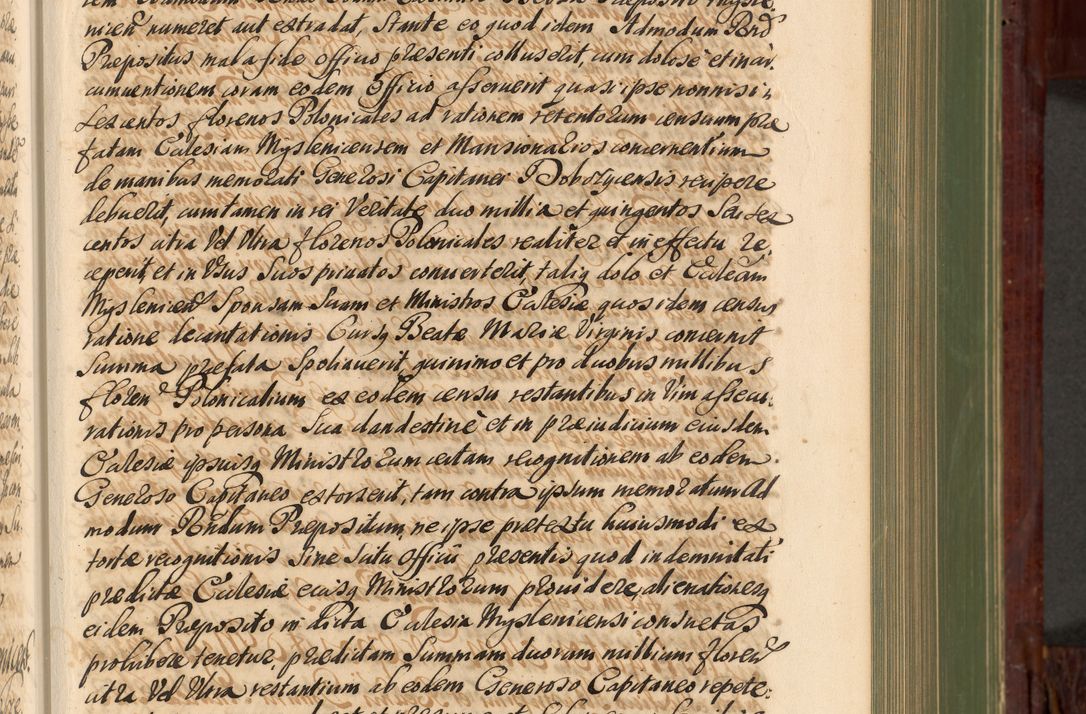 nicen numeret aut extradat, Stante eo quod idem Admodum Rnd
Præpositus mala fide officio præsenti colluserit, cum dolosè et in cir,
cumventionem coram eodem Officio asseruerit quasi ipse nonnisi
sexcentos florenos Polonicales ad rationem retentorum censuum præ
fatam Ecclesiam Myslenicensem et Mansionarios concernentium
de manibus memorati Generosi Capitanei Dobczycensis recipere
debuerit, cum tamen in rei Veritate duo millia et quingentos Seu sex
centos citra Vel Ultra florenos Polonicales realiter et in effectu re
ceperit, et in Usus Suos privatos converterit, taliq dolo et Ecclam
Myslenicen Sponsam Suam et Ministros Ecclesiæ, quos idem census
ratione decantationis Cursq Beatæ Mariæ Virginis concernit
Summa præfata Spoliaverit, quinimo et pro duobus millibus
floren Polonicalium ex eodem censu restantibus in Vim assecu,
rationis pro persona Sua clandestinè et in præiudicium eiusdem
Ecclesiæ ipsiusq Ministrorum certam recognitionem ab eodem
Generoso Capitaneo extorserit, tam contra ipsum memoratum Ad
modum Rndum Præpositum, ne ipse prætextu huiusmodi ex
tortæ recognitionis Sine Scitu Officii præsentis quod indemnitati
prædictæ Ecclesiæ eiusq Ministrorum providere, alienationesq
eidem Præposito in dicta Ecclesia Myslenicensi consuetas
prohibere tenetur, prædictam Summam duorum millium floren
citra Vel Ultra restantium ab eodem Generoso Capitaneo repete: